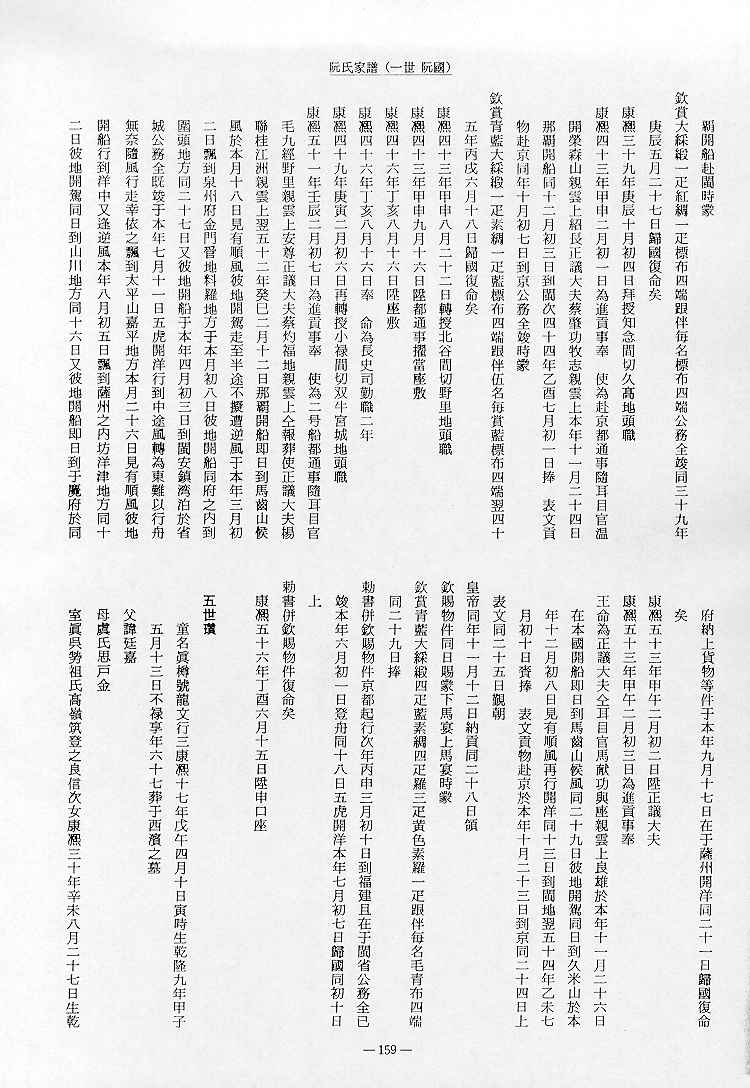 阮氏家譜（一世 阮國）
覇開船赴閩時蒙
欽賞大綵緞一疋紅綢一疋標布四端跟伴毎名標布四端公務全竣同三十九年
庚辰五月二十七日歸國復命矣
康凞三十九年庚辰十月初四日拜授知念間切久髙地頭職
康凞四十三年甲申二月初一日為進貢事奉　使為赴京都通事隨耳目官温
開榮森山親雲上紹長正議大夫蔡肇功牧志親雲上本年十一月二十四日
那覇開船同十二月初三日到閩次四十四年乙酉七月初一日捧　表文貢
物赴京同年十月初七日到京公務全竣時蒙
欽賞青藍大綵緞一疋素綢一疋藍標布四端跟伴伍名毎賞藍標布四端翌四十
五年丙戌六月十八日歸國復命矣
康凞四十三年甲申八月二十二日轉授北谷間切野里地頭職
康凞四十三年甲申九月十六日陞都通事擢當座敷
康凞四十六年丁亥八月十六日陞座敷
康凞四十六年丁亥八月十六日奉　命為長史司勤職二年
康凞四十九年庚寅二月初六日再轉授小禄間切双牛宮城地頭職
康凞五十一年壬辰二月初七日為進貢事奉　使為二号船都通事隨耳目官
毛九經野里親雲上安尊正議大夫蔡灼福地親雲上仝報葬使正議大夫楊
聯桂江洲親雲上翌五十二年癸巳二月十二日那覇開船即日到馬齒山候
風於本月十八日見有順風彼地開駕走至半途不擬遭逆風于本年三月初
二日飄到泉州府金門晋地料羅地方于本月初八日彼地開船同府之内到
圍頭地方同二十七日又彼地開船于本年四月初三日到閩安鎮湾泊於省
城公務全既竣于本年七月十一日五虎開洋行到中途風轉為東難以行舟
無奈隨風行走幸依之飄到太平山嘉平地方本月二十六日見有順風彼地
開船行到洋中又逢逆風本年八月初五日飄到薩州之内坊洋津地方同十
二日彼地開駕同日到山川地方同十六日又彼地開船即日到于麑府於同
府納上貨物等件于本年九月十七日在于薩州開洋同二十一日歸國復命
矣
康凞五十三年甲午二月初二日陞正議大夫
康凞五十三年甲午二月初三日為進貢事奉
王命為正議大夫仝耳目官馬献功與座親雲上良雄於本年十一月二十六日
在本國開船即日到馬齒山候風同二十九日彼地開駕同日到久米山於本
年十二月初八日見有順風再行開洋同十三日到閩地翌五十四年乙未七
月初十日賫捧　表文貢物赴京於本年十月二十三日到京同二十四日上
表文同二十五日覲朝
皇帝同年十一月十二日納貢同二十八日領
欽賜物件同日賜蒙下馬宴上馬宴時蒙
欽賞青藍大綵緞四疋藍素綢四疋羅三疋黃色素羅一疋跟伴毎名毛青布四端
同二十九日捧
勅書併欽賜物件京都起行次年丙申三月初十日到福建且在于閩省公務全已
竣本年六月初一日登舟同十八日五虎開洋本年七月初七日歸國同初十日
上
勅書併欽賜物件復命矣
康凞五十六年丁酉六月十五日陞申口座
五世瓚
童名眞樽號龍文行三康凞十七年戊午四月十日寅時生乾隆九年甲子
五月十三日不禄享年六十七葬于西濱之墓
父諱廷嘉
母虞氏思戸金
室眞呉勢祖氏髙嶺筑登之良信次女康凞三十年辛未八月二十七日生乾
— 159 —